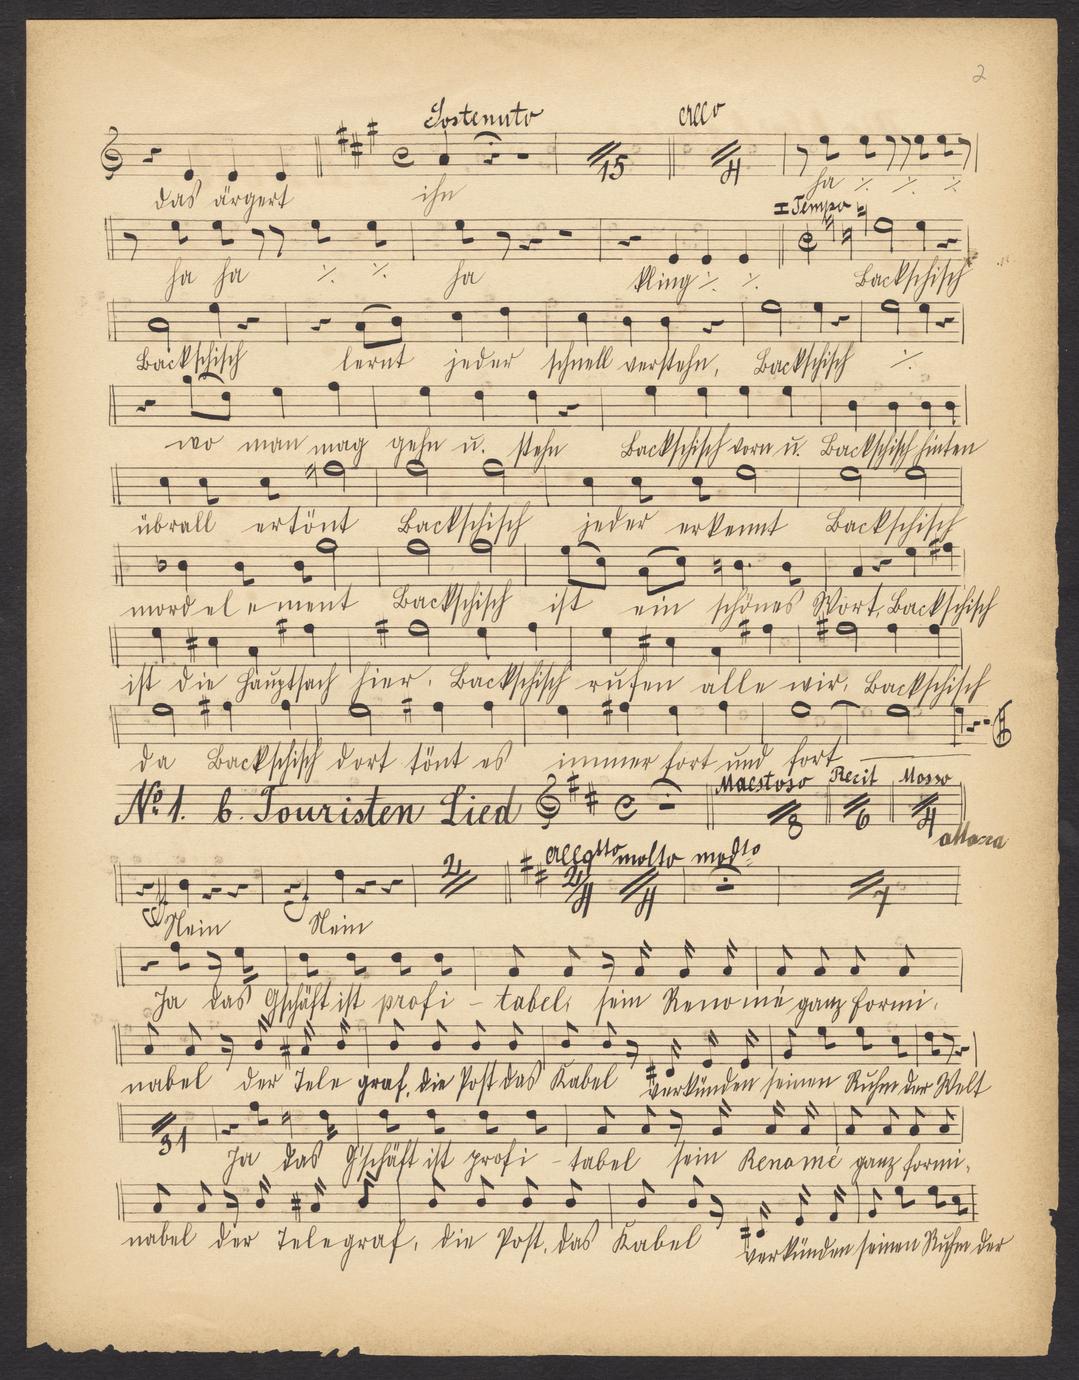 2
Sostenuto
15 4
das ärgert ihn ha ⁒ ⁒ ⁒
I Tempo
ha ha ⁒ ⁒ ha kling ⁒ ⁒ Backschisch
Backschisch lernt jeder schnell verstehn, Backschisch ⁒
wo man mag gehn u. stehn Backschisch vorn u. Backschisch hinten
übrall ertönt Backschisch jeder erkennt Backschisch
mord el e ment Backschisch ist ein schönes Wort, Backschisch
ist die Hauptsach hier. Backschisch rufen alle wir, Backschisch
da Backschisch dort tönt es immer fort und fort
Maestoso Recit Mosso
No. 1. 6. Touristen Lied 8 6 4
attacca
allegtto molto modto
2 2 4 4 7
Nein Nein
Ja das Gschäft ist profi - tabel, sein Renomé ganz formi,
nabel der Tele graf, die Post das Kabel verkünden seinen Ruhm der Welt
31
Ja das G'schäft ist profi - tabel sein Renomé ganz formi,
nabel der Telegraf, die Post, das Kabel verkünden seinen Ruhm der